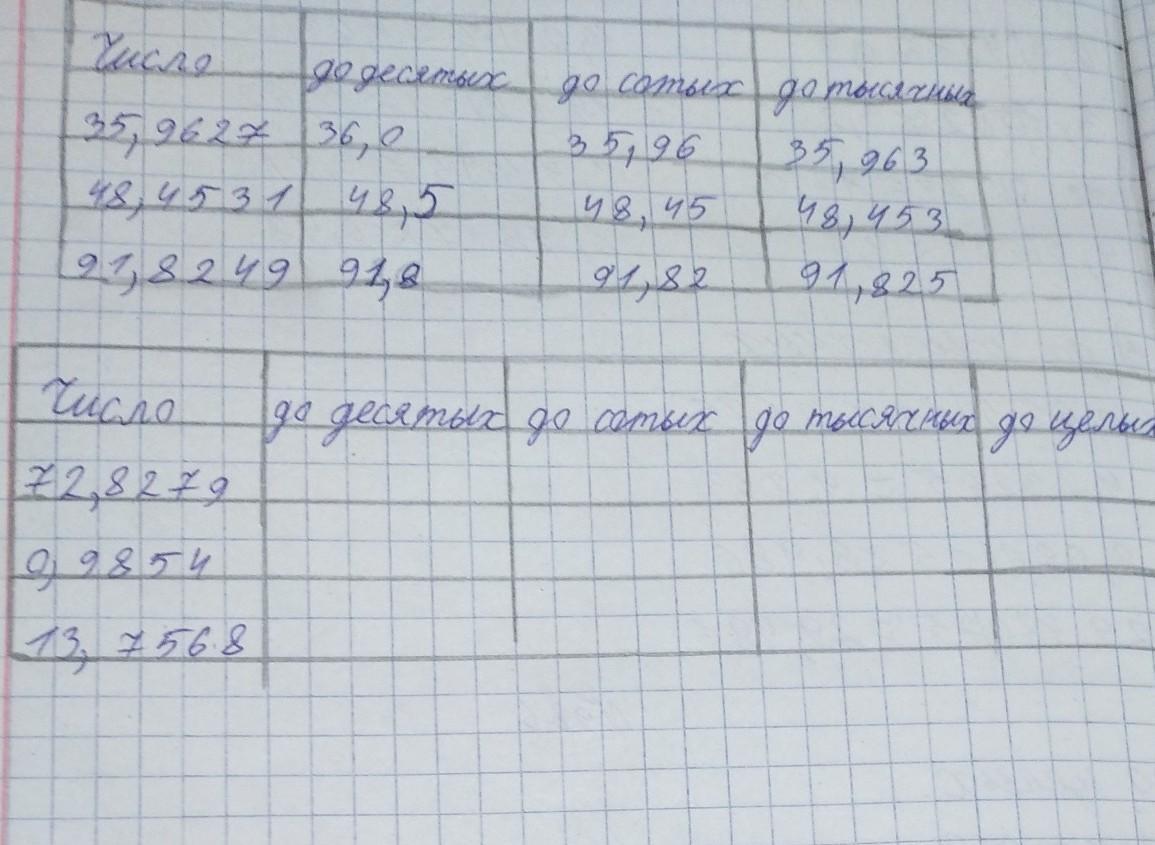 Число до десятых до сотых до тысячных
35,9627 36,0 35,96 35,963
48,4531 48,5 48,45 48,453
91,8249 91,8 91,82 91,825
Число до десятых до сотых до тысячных до целых
72,8279
0,9854
13,7568